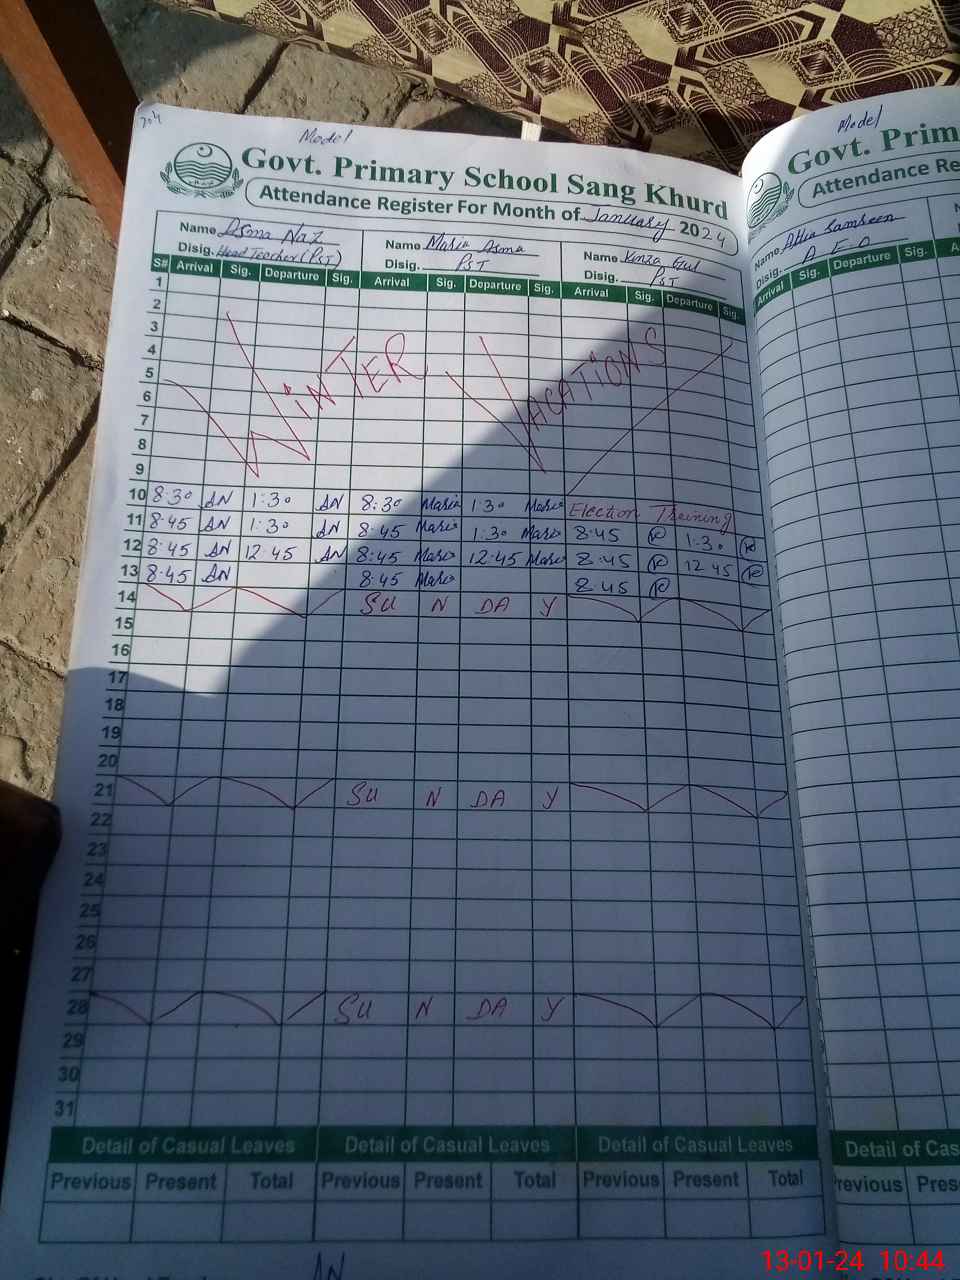 Model
Govt. Primary School Sang Khurd
Attendance Register For Month of January 2024
Name Asma Naz Name Maria Asma Name Kinza Gul
Disig. Head Teacher (PST) Disig. PST Disig. PST
S# Arrival Sig. Departure Sig. Arrival Sig. Departure Sig. Arrival Sig. Departure Sig.
1
2
3
4
5
6
7
8
9
WINTER VACATIONS
10 8:30 AN 1:30 AN 8:30 Maria 1:30 Maria Election Training
11 8:45 AN 1:30 AN 8:45 Maria 1:30 Maria 8:45 1:30
12 8:45 AN 12:45 AN 8:45 Maria 12:45 Maria 8:45 12:45
13 8:45 AN 8:45 Maria 8:45
14 SU N DA Y
15
16
17
18
19
20
21 SU N DA Y
22
23
24
25
26
27
28 SU N DA Y
29
30
31
Detail of Casual Leaves Detail of Casual Leaves Detail of Casual Leaves
Previous Present Total Previous Present Total Previous Present Total
AN
Model
Govt. Prim
Attendance Re
Name
Disig. A E O
Arrival Sig. Departure Sig. A
Detail of Cas
Previous Pres
13-01-24 10:44